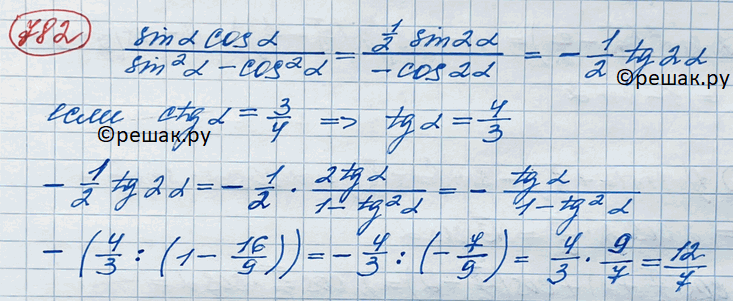 782 sinα cosα / (sin²α - cos²α) = ½ sin2α / (-cos2α) = - ½ tg 2α
©решак.ру
если ctg α = 3/4 => tg α = 4/3
©решак.ру
- ½ tg 2α = - ½ · 2tgα / (1 - tg²α) = - tgα / (1 - tg²α)
- (4/3 : (1 - 16/9)) = - 4/3 : (- 7/9) = 4/3 · 9/7 = 12/7